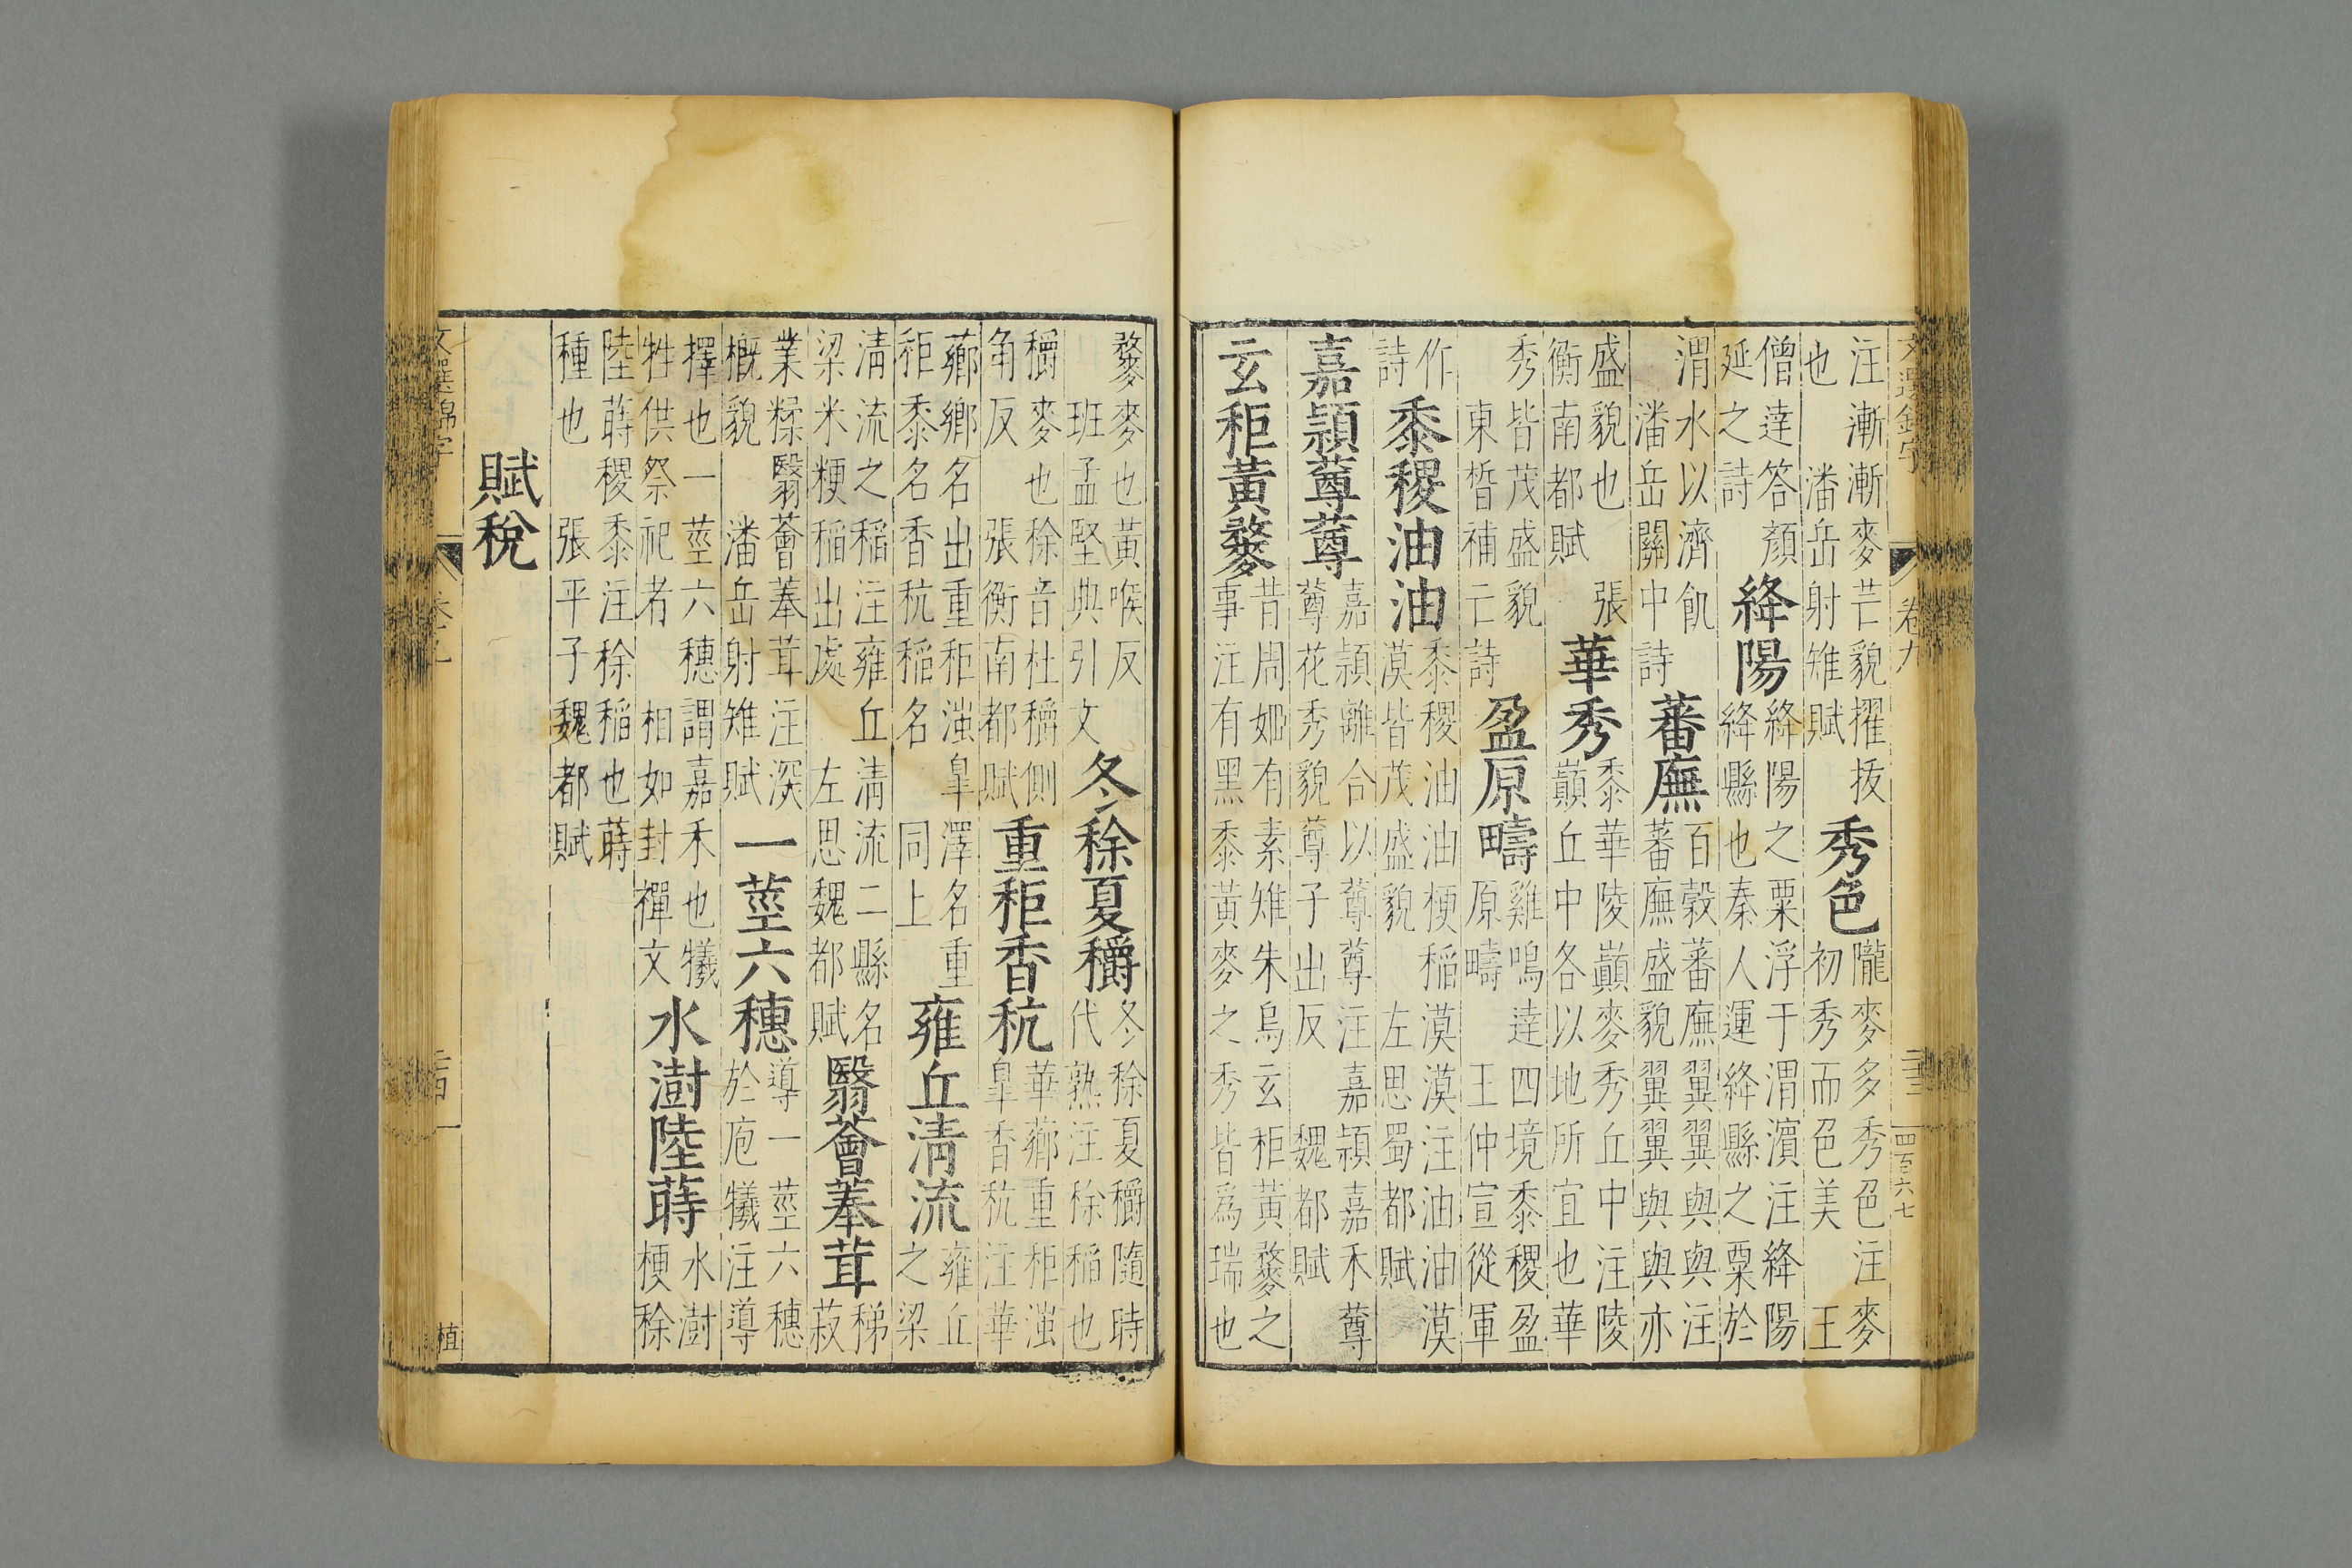 文選錦字 卷九 二十三 四百六七
注漸漸麥芒貌擢抜
也 潘岳射雉賦
秀色
隴麥多秀色注麥
初秀而色美 王
僧達答顏
延之詩
絳陽
絳陽之粟浮于渭濱注絳陽
絳縣也秦人運絳縣之粟於
渭水以濟飢
潘岳關中詩
蕃廡
百穀蕃廡翼翼與與注
蕃廡盛貌翼翼與與亦
盛貌也 張
衡南都賦
華秀
黍華陵巔麥秀丘中注陵
巔丘中各以地所宜也華
秀皆茂盛貌
東晳補亡詩
盈原疇
雞鳴達四境黍稷盈
原疇 王仲宣從軍
作
詩
黍稷油油
黍稷油油粳稻漠漠注油油漠
漠皆茂盛貌 左思蜀都賦
嘉頴蓴蓴
嘉頴離合以蓴蓴注嘉頴嘉禾蓴
蓴花秀貌蓴子出反 魏都賦
玄秬黃麰
昔周姬有素雉朱烏玄秬黃麰之
事注有黑黍黃麥之秀皆爲瑞也
麰麥也黃喉反
班孟堅典引文
冬稌夏穱
冬稌夏穱隨時
代熟注稌稻也
穱麥也稌音杜穱側
角反 張衡南都賦
重秬香秔
華薌重秬滍
皋香秔注華
薌鄉名出重秬滍皋澤名重
秬黍名香秔稻名 同上
雍丘清流
雍丘
之梁
清流之稻注雍丘清流二縣名
梁米粳稻出處 左思魏都賦
翳薈菶茸
稊
菽
業糅翳薈菶茸注深
概貌 潘岳射雉賦
一莖六穗
導一莖六穗
於庖犧注導
擇也一莖六穗謂嘉禾也犧
牲供祭祀者 相如封禪文
水澍陸蒔
水澍
粳稌
陸蒔稷黍注稌稻也蒔
種也 張平子魏都賦
賦稅
文選錦字 二十四 植